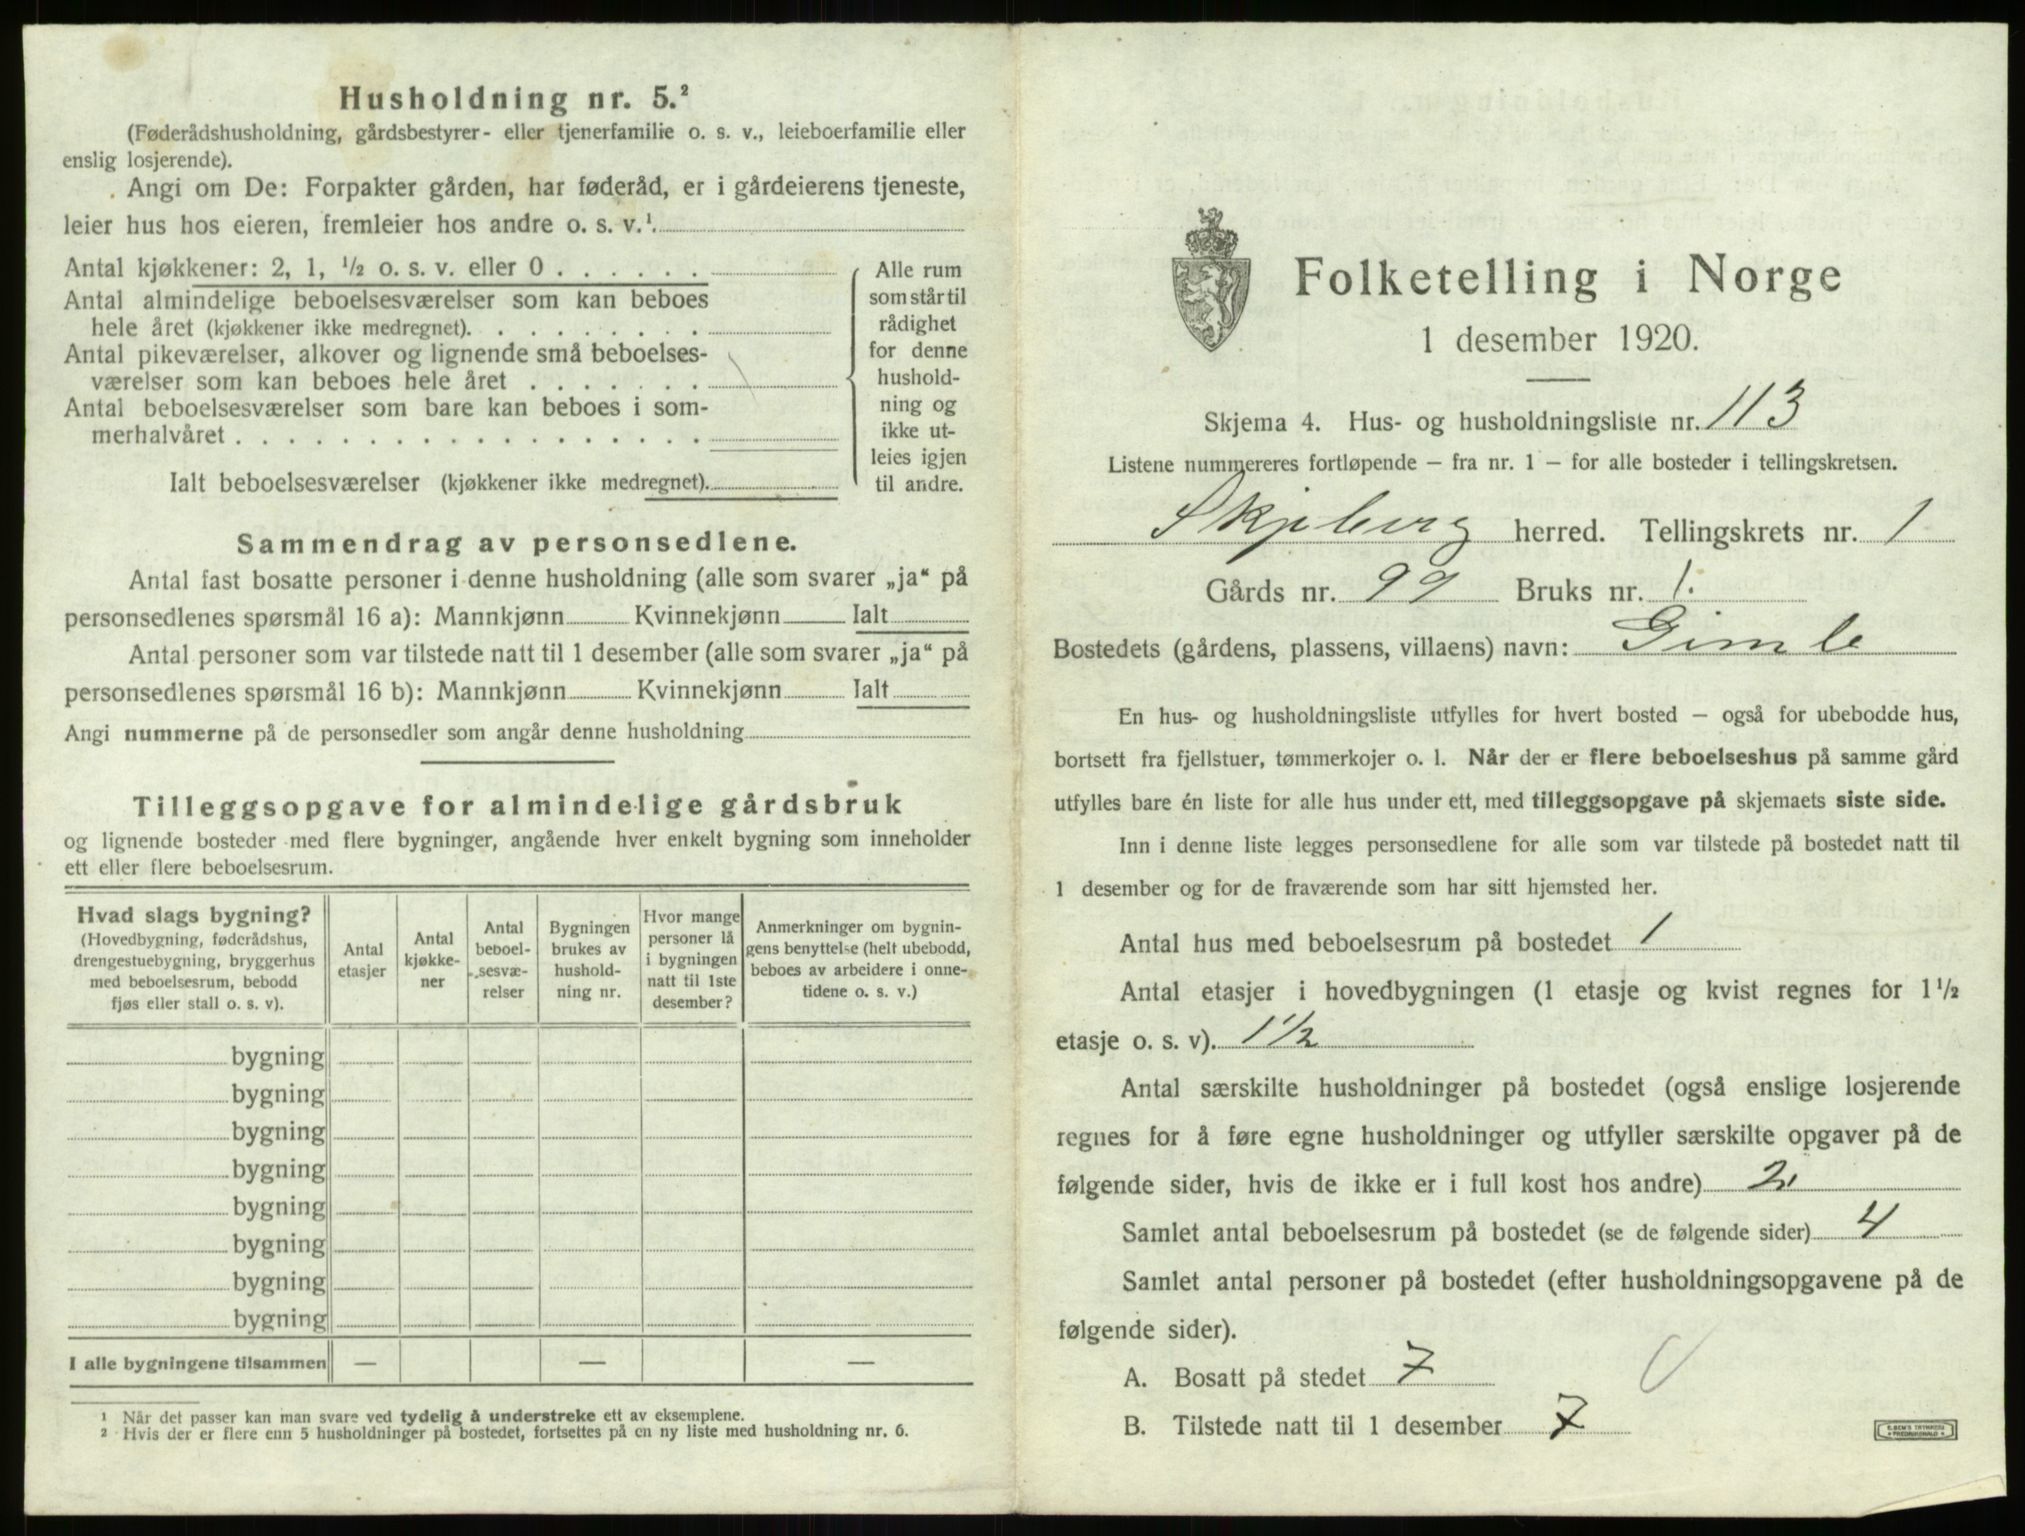 Husholdning nr. 5.²
(Føderådshusholdning, gårdsbestyrer- eller tjenerfamilie o. s. v., leieboerfamilie eller
enslig losjerende).
Angi om De: Forpakter gården, har føderåd, er i gårdeierens tjeneste,
leier hus hos eieren, fremleier hos andre o. s. v.¹
Antal kjøkkener: 2, 1, ½ o. s. v. eller 0 . . . . . .
Antal almindelige beboelsesværelser som kan beboes
hele året (kjøkkener ikke medregnet). . . . . . . . .
Antal pikeværelser, alkover og lignende små beboelses-
værelser som kan beboes hele året . . . . . . .
Antal beboelsesværelser som bare kan beboes i som-
merhalvåret . . . . . . . . . . . . . . . . . .
Ialt beboelsesværelser (kjøkkener ikke medregnet).
Alle rum
som står til
rådighet
for denne
hushold-
ning og
ikke ut-
leies igjen
til andre.
Sammendrag av personsedlene.
Antal fast bosatte personer i denne husholdning (alle som svarer „ja“ på
personsedlenes spørsmål 16 a): Mannkjønn Kvinnekjønn Ialt
Antal personer som var tilstede natt til 1 desember (alle som svarer „ja“ på
personsedlenes spørsmål 16 b): Mannkjønn Kvinnekjønn Ialt
Angi nummerne på de personsedler som angår denne husholdning
Tilleggsopgave for almindelige gårdsbruk
og lignende bosteder med flere bygninger, angående hver enkelt bygning som inneholder
ett eller flere beboelsesrum.
Hvad slags bygning?
(Hovedbygning, føderådshus,
drengestuebygning, bryggerhus
med beboelsesrum, bebodd
fjøs eller stall o. s. v).
Antal
etasjer
Antal
kjøkke-
ner
Antal
beboel-
sesvæ-
relser
Bygningen
brukes av
hushold-
ning nr.
Hvor mange
personer lå
i bygningen
natt til 1ste
desember?
Anmerkninger om bygnin-
gens benyttelse (helt ubebodd,
beboes av arbeidere i onne-
tidene o. s. v.)
bygning
bygning
bygning
bygning
bygning
bygning
bygning
bygning
I alle bygningene tilsammen — — —
¹ Når det passer kan man svare ved tydelig å understreke ett av eksemplene.
² Hvis der er flere enn 5 husholdninger på bostedet, fortsettes på en ny liste med husholdning nr. 6.
Folketelling i Norge
1 desember 1920.
Skjema 4. Hus- og husholdningsliste nr. 113
Listene nummereres fortløpende – fra nr. 1 – for alle bosteder i tellingskretsen.
Skjeberg herred. Tellingskrets nr. 1
Gårds nr. 99 Bruks nr. 1.
Bostedets (gårdens, plassens, villaens) navn: Gimle
En hus- og husholdningsliste utfylles for hvert bosted – også for ubebodde hus,
bortsett fra fjellstuer, tømmerkojer o. l. Når der er flere beboelseshus på samme gård
utfylles bare én liste for alle hus under ett, med tilleggsopgave på skjemaets siste side.
Inn i denne liste legges personsedlene for alle som var tilstede på bostedet natt til
1 desember og for de fraværende som har sitt hjemsted her.
Antal hus med beboelsesrum på bostedet 1
Antal etasjer i hovedbygningen (1 etasje og kvist regnes for 1½
etasje o. s. v). 1½
Antal særskilte husholdninger på bostedet (også enslige losjerende
regnes for å føre egne husholdninger og utfyller særskilte opgaver på de
følgende sider, hvis de ikke er i full kost hos andre) 2
Samlet antal beboelsesrum på bostedet (se de følgende sider) 4
Samlet antal personer på bostedet (efter husholdningsopgavene på de
følgende sider).
A. Bosatt på stedet 7
B. Tilstede natt til 1 desember 7